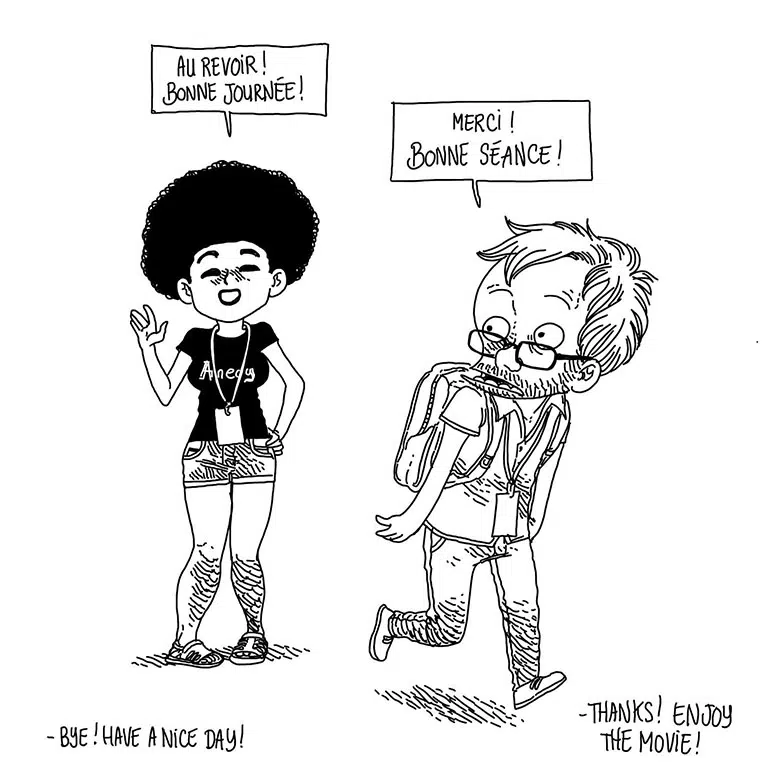 AU REVOIR !
BONNE JOURNÉE !
MERCI !
BONNE SÉANCE !
Annecy
- BYE ! HAVE A NICE DAY !
- THANKS ! ENJOY
THE MOVIE !